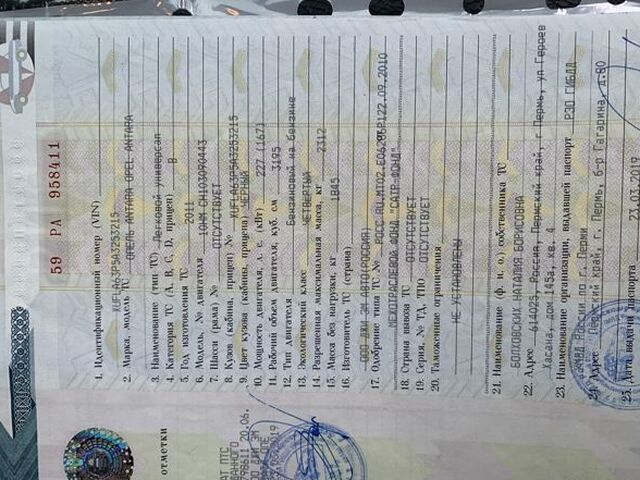 59 РА 958411
1. Идентификационный номер (VIN) XUFLA63P5A3253215
2. Марка, модель ТС ОПЕЛЬ АНТАРА OPEL ANTARA
3. Наименование (тип ТС) Легковой универсал
4. Категория ТС (A, B, C, D, прицеп) B
5. Год изготовления ТС 2011
6. Модель, № двигателя 10HM CH103090443
7. Шасси (рама) № ОТСУТСТВУЕТ
8. Кузов (кабина, прицеп) № XUFLA63P5A3253215
9. Цвет кузова (кабины, прицепа) ЧЕРНЫЙ
10. Мощность двигателя, л. с. (кВт) 227 (167)
11. Рабочий объем двигателя, куб. см 3195
12. Тип двигателя Бензиновый на бензине
13. Экологический класс ЧЕТВЕРТЫЙ
14. Разрешенная максимальная масса, кг 2312
15. Масса без нагрузки, кг 1845
16. Изготовитель ТС (страна)
ООО ДЖИ ЭМ АВТО (РОССИЯ)
17. Одобрение типа ТС № РОСС RU.МТ02.Е06286Р1 22.09.2010
МЕЖОТРАСЛЕВОЙ ФОНД "САТР-ФОНД"
18. Страна вывоза ТС ОТСУТСТВУЕТ
19. Серия, № ТД, ТПО ОТСУТСТВУЕТ
20. Таможенные ограничения
НЕ УСТАНОВЛЕНЫ
21. Наименование (ф. и. о.) собственника ТС
БОЛХОВСКИХ НАТАЛИЯ БОРИСОВНА
22. Адрес 614025, Россия, Пермский край, г Пермь, ул Героев
Хасана, дом 145а, кв. 4
23. Наименование организации, выдавшей паспорт РЭО ГИБДД
России по г. Перми
24. Адрес Пермский край, г. Пермь, б-р Гагарина, д.80
25. Дата выдачи паспорта 23.03.2019
отметки